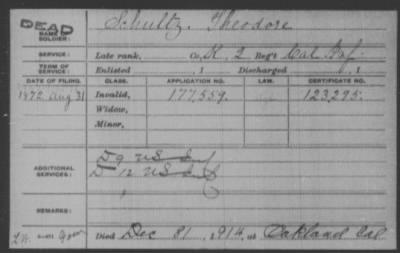 DEAD
NAME OF SOLDIER: Schultz, Theodore
SERVICE: Late rank, Co. K, 2 Reg't Cal. Inf.
TERM OF SERVICE: Enlisted , 1 Discharged , 1
DATE OF FILING. CLASS. APPLICATION NO. LAW. CERTIFICATE NO.
1872 Aug 31 Invalid, 177,559. 123,295.
Widow,
Minor,
ADDITIONAL SERVICES: D 9 US Inf
D 12 US Inf
REMARKS:
Died Dec 31, 1914, at Oakland Cal